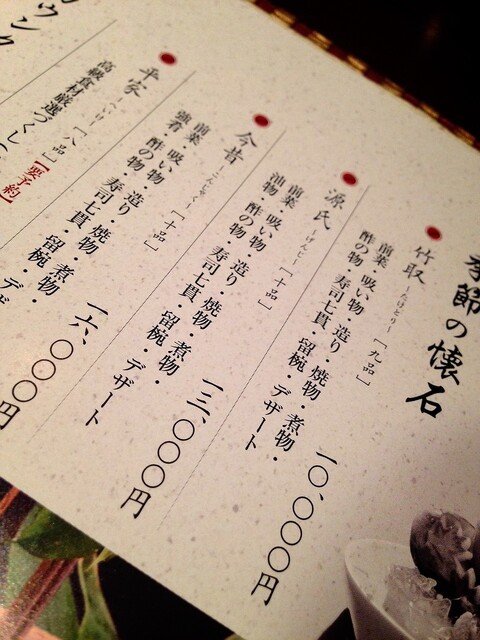 季節の懐石
竹取 ―たけとり― [九品]
前菜・吸い物・造り・焼物・煮物・
酢の物・寿司七貫・留椀・デザート
一〇、〇〇〇円
源氏 ―げんじ― [十品]
前菜・吸い物・造り・焼物・煮物・
油物・酢の物・寿司七貫・留椀・デザート
一三、〇〇〇円
今昔 ―こんじゃく― [十品]
前菜・吸い物・造り・焼物・煮物・
強肴・酢の物・寿司七貫・留椀・デザ
一六、〇〇〇円
平家 ―へいけ― [八品]【要予約】
高級食材厳選づくし